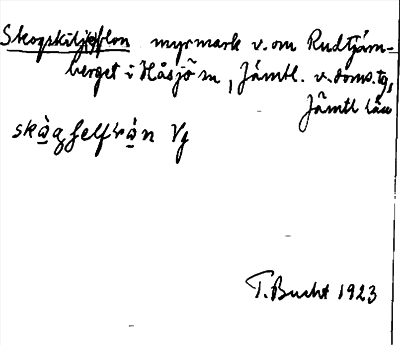 Skogskiljåflon myrmark v. om Rudtjärn-
berget i Håsjö sn, Jämtl. v. doms.tg,
Jämtl län
Vf
T. Bucht 1923